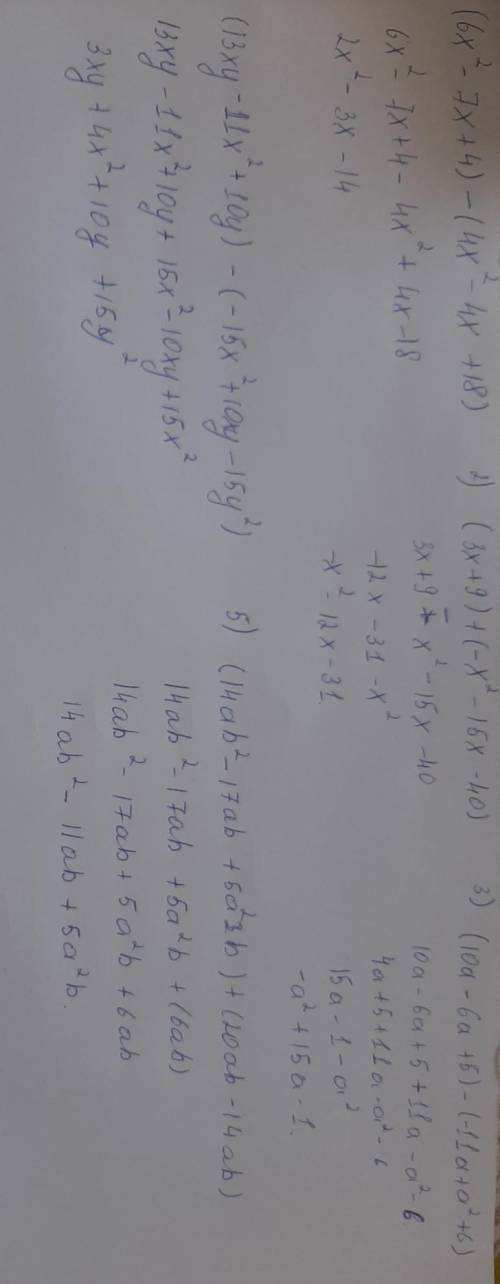 (6x² - 7x + 4) - (4x² - 4x + 18)
6x² - 7x + 4 - 4x² + 4x - 18
2x² - 3x - 14
2) (3x + 9) + (-x² - 15x - 40)
3x + 9 - x² - 15x - 40
-12x - 31 - x²
-x² - 12x - 31
3) (10a - 6a + 5) - (-11a + a² + 6)
10a - 6a + 5 + 11a - a² - 6.
4a + 5 + 11a - a² - 6
15a - 1 - a²
-a² + 15a - 1.
(13xy - 11x² + 10y) - (-15x² + 10xy - 15y²)
13xy - 11x² + 10y + 15x² - 10xy + 15x²
3xy + 4x² + 10y + 15y²
5) (14ab² - 17ab + 5a²b) + (20ab - 14ab)
14ab² - 17ab + 5a²b + (6ab)
14ab² - 17ab + 5a²b + 6ab
14ab² - 11ab + 5a²b.